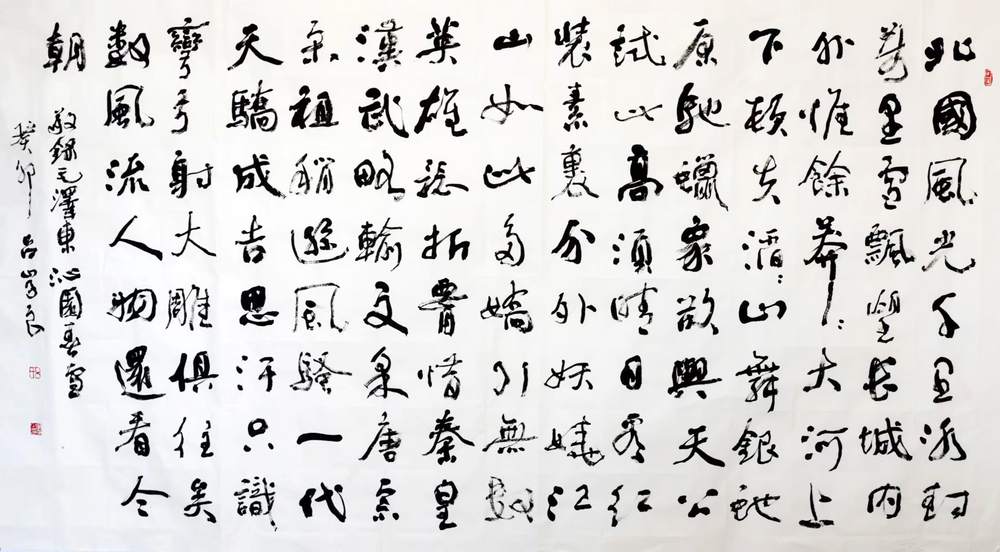 北國風光千里冰封
萬里雪飄望長城内
外惟餘莽〻大河上
下頓失滔〻山舞銀蛇
原馳蠟象欲與天公
試比高須晴日看紅
裝素裹分外妖嬈江
山如此多嬌引無數
英雄競折腰惜秦皇
漢武略輸文采唐宗
宋祖稍遜風騷一代
天驕成吉思汗只識
彎弓射大雕俱往矣
數風流人物還看今
朝
敬錄毛澤東沁園春雪
癸卯